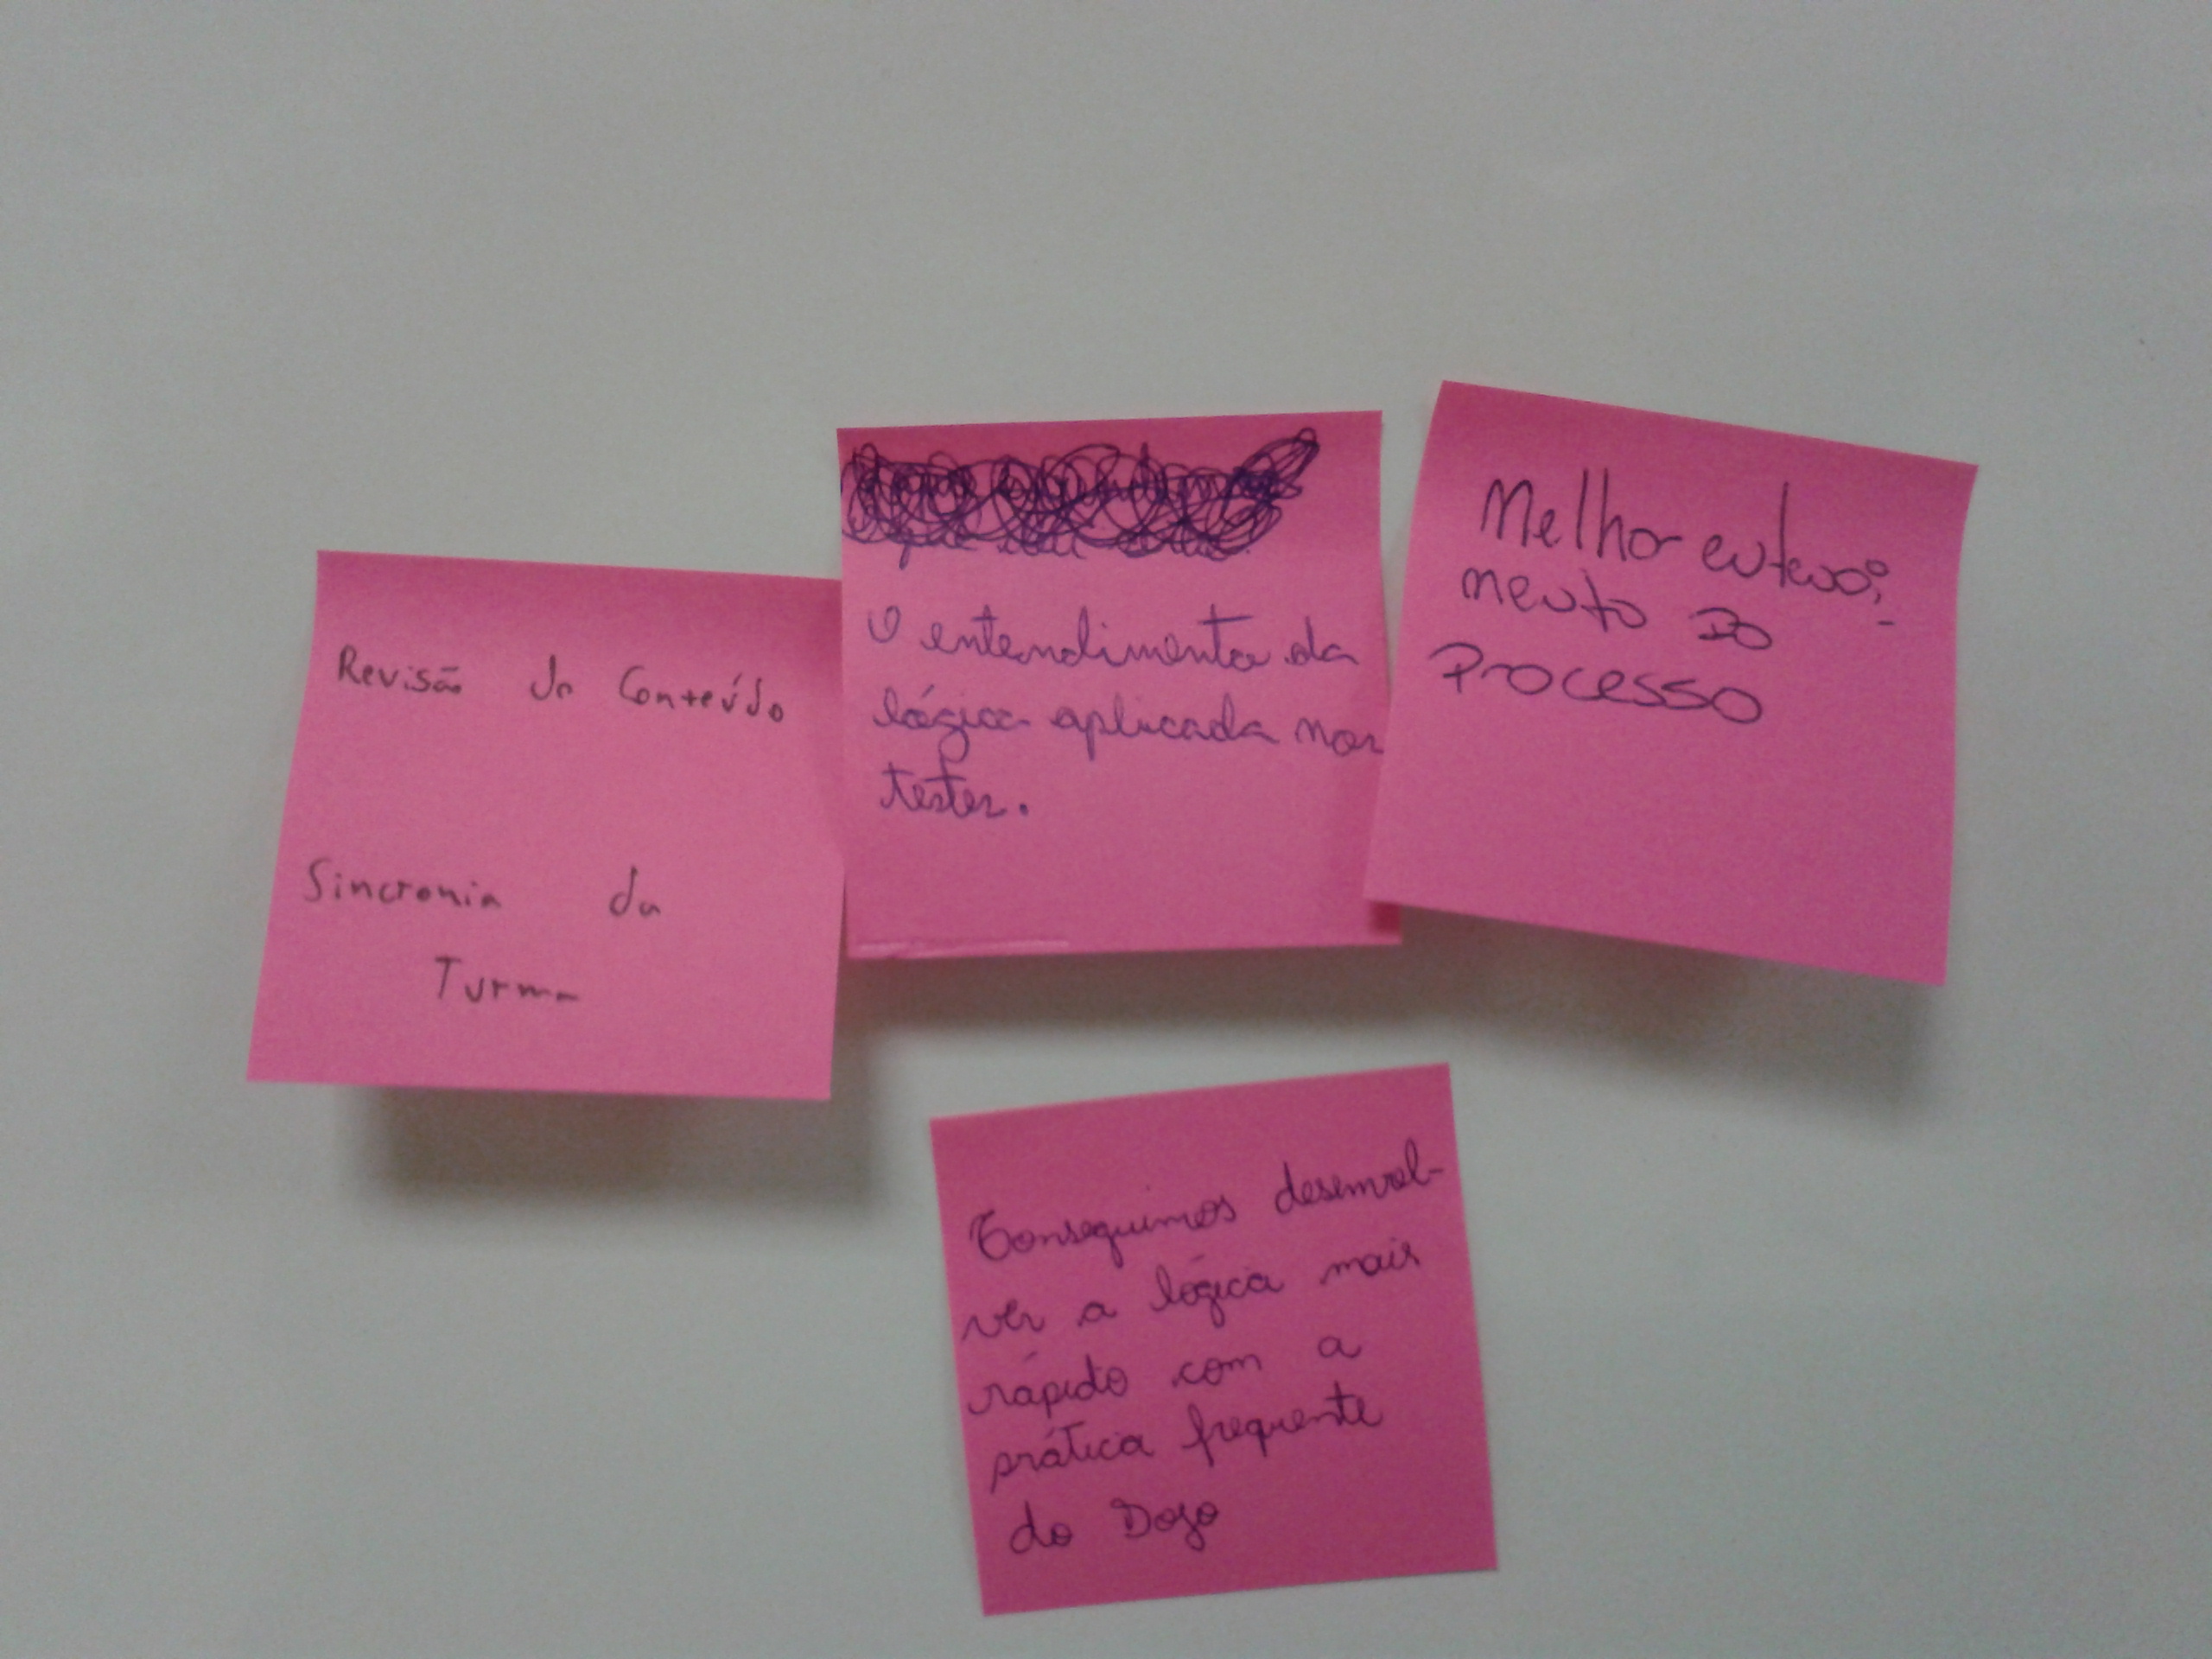 Revisão do Conteúdo
Sincronia da
Turma
O entendimento da
lógica aplicada nos
testes.
Melhor entendi-
mento do
Processo
Conseguimos desenvol-
ver a lógica mais
rápido com a
prática frequente
do Dojo